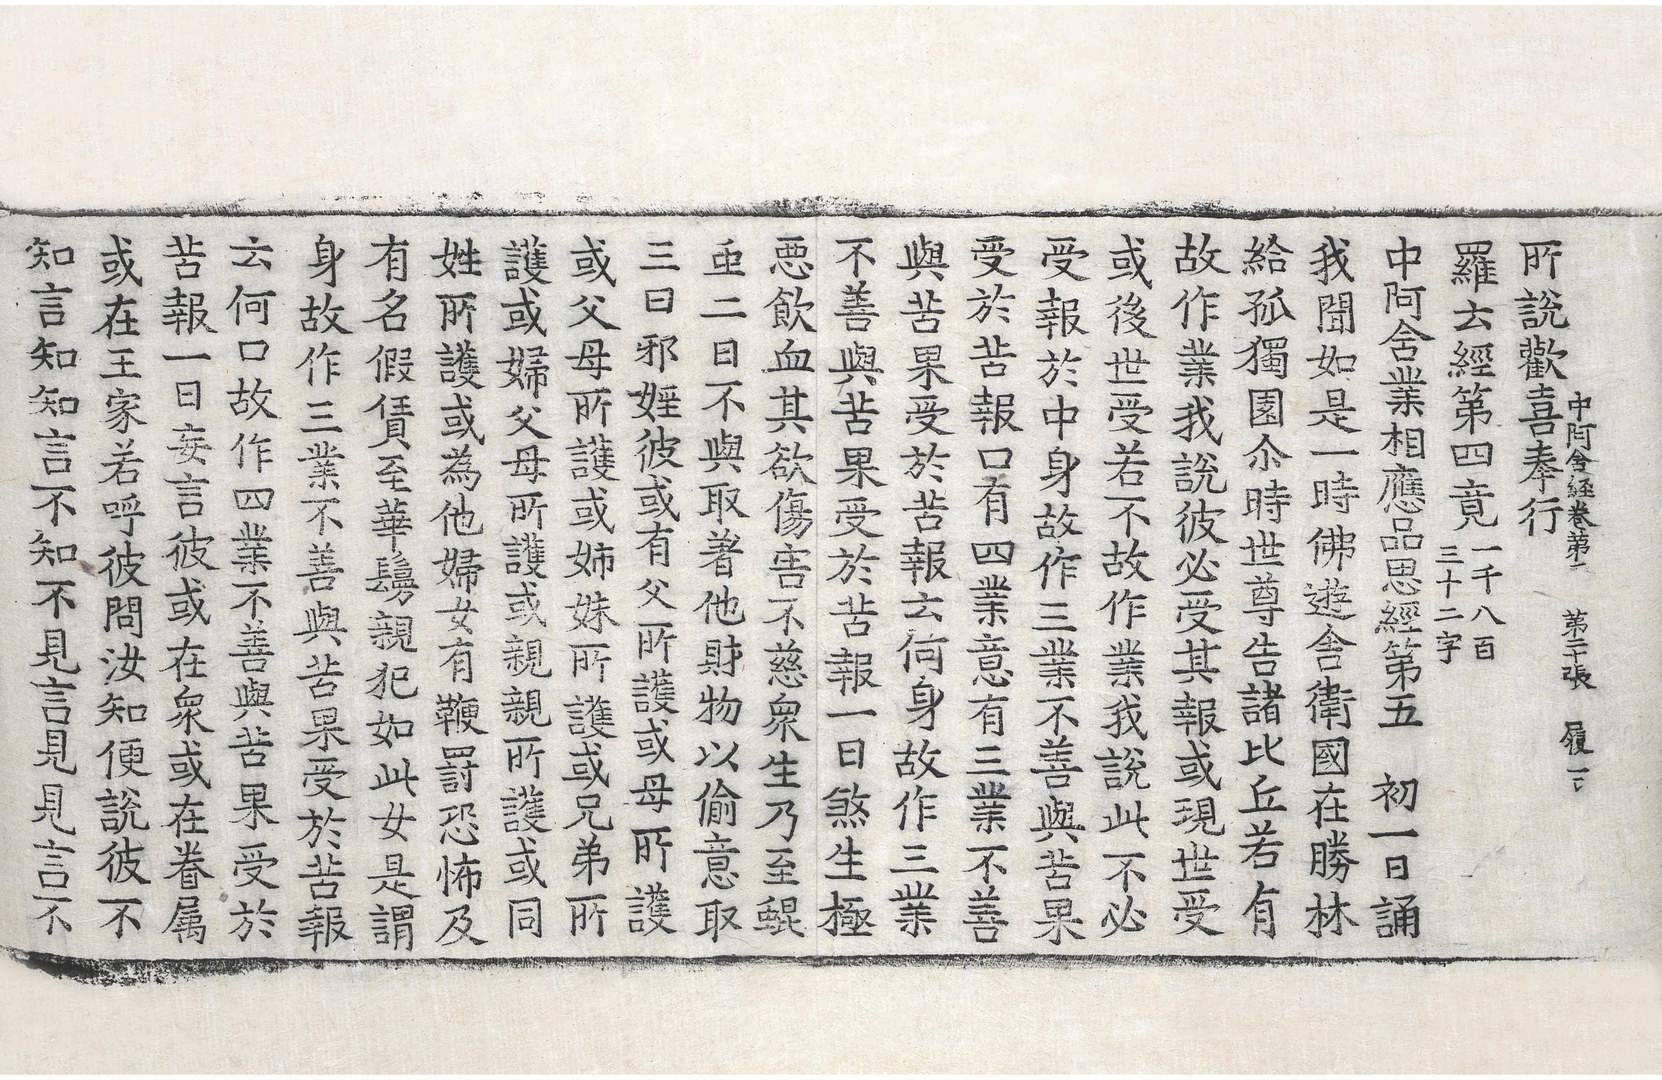 所說歡喜奉行
中阿含経卷第三 第二十張 履
羅云經第四竟 一千八百
三十二字
中阿含業相應品思經第五 初一日誦
我聞如是一時佛遊舍衛國在勝林
給孤獨園尒時世尊告諸比丘若有
故作業我說彼必受其報或現世受
或後世受若不故作業我說此不必
受報於中身故作三業不善與苦果
受於苦報口有四業意有三業不善
與苦果受於苦報云何身故作三業
不善與苦果受於苦報一曰煞生極
惡飲血其欲傷害不慈衆生乃至蜫
䖝二曰不與取著他財物以偷意取
三曰邪婬彼或有父所護或母所護
或父母所護或姉妹所護或兄弟所
護或婦父母所護或親親所護或同
姓所護或為他婦女有鞭罸恐怖及
有名假賃至華鬘親犯如此女是謂
身故作三業不善與苦果受於苦報
云何口故作四業不善與苦果受於
苦報一曰妄言彼或在衆或在眷属
或在王家若呼彼問汝知便說彼不
知言知知言不知不見言見見言不